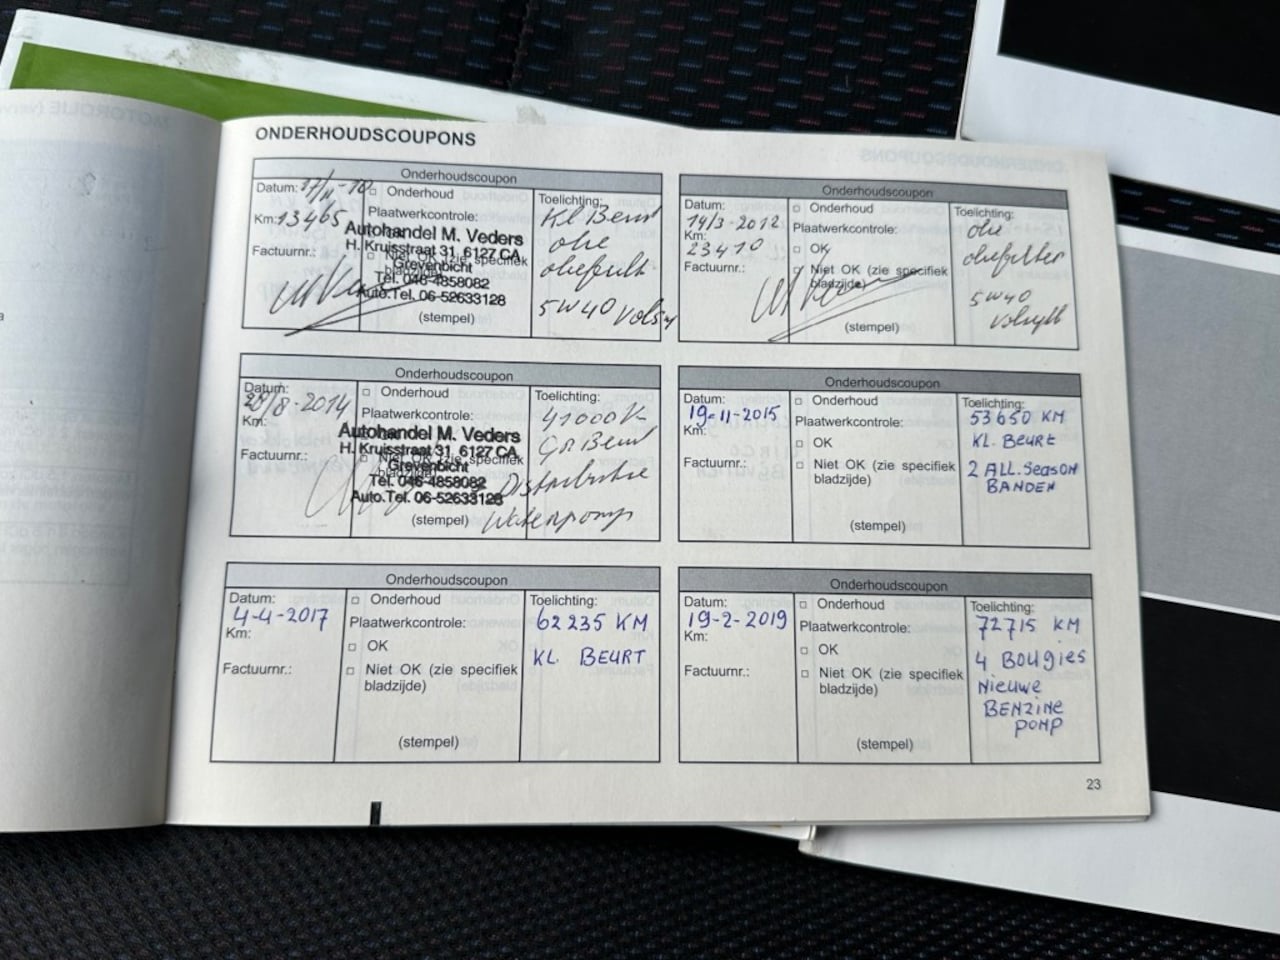 ONDERHOUDSCOUPONS
Onderhoudscoupon
Datum:
Km: 13465
Factuurnr.:
Onderhoud
Plaatwerkcontrole:
Autohandel M. Veders
H. Kruisstraat 31, 6127 CA
Grevenbicht
Tel. 046-4858082
Auto.Tel. 06-52633128
(stempel)
Toelichting:
Kl Beurt
olie
oliefilt
5W40 Volsy
Onderhoudscoupon
Datum:
14/3-2012
Km:
23410
Factuurnr.:
Onderhoud
Plaatwerkcontrole:
OK
Niet OK (zie specifiek
bladzijde)
(stempel)
Toelichting:
olie
oliefilter
5W40
Onderhoudscoupon
Datum:
/8-2014
Km:
Factuurnr.:
Onderhoud
Plaatwerkcontrole:
Autohandel M. Veders
H. Kruisstraat 31, 6127 CA
Grevenbicht
Tel. 046-4858082
Auto.Tel. 06-52633128
(stempel)
Toelichting:
41000 K
Gr Beurt
Distributie
Waterpomp
Onderhoudscoupon
Datum:
19-11-2015
Km:
Factuurnr.:
Onderhoud
Plaatwerkcontrole:
OK
Niet OK (zie specifiek
bladzijde)
(stempel)
Toelichting:
53650 KM
KL. BEURT
2 ALL.SEASON
BANDEN
Onderhoudscoupon
Datum:
4-4-2017
Km:
Factuurnr.:
Onderhoud
Plaatwerkcontrole:
OK
Niet OK (zie specifiek
bladzijde)
(stempel)
Toelichting:
62235 KM
KL. BEURT
Onderhoudscoupon
Datum:
19-2-2019
Km:
Factuurnr.:
Onderhoud
Plaatwerkcontrole:
OK
Niet OK (zie specifiek
bladzijde)
(stempel)
Toelichting:
72715 KM
4 BOUGIES
NIEUWE
BENZINE
POMP
23